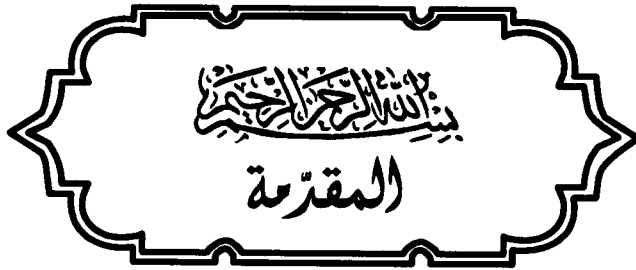 بسم الله الرحمن الرحيم
المقدّمة